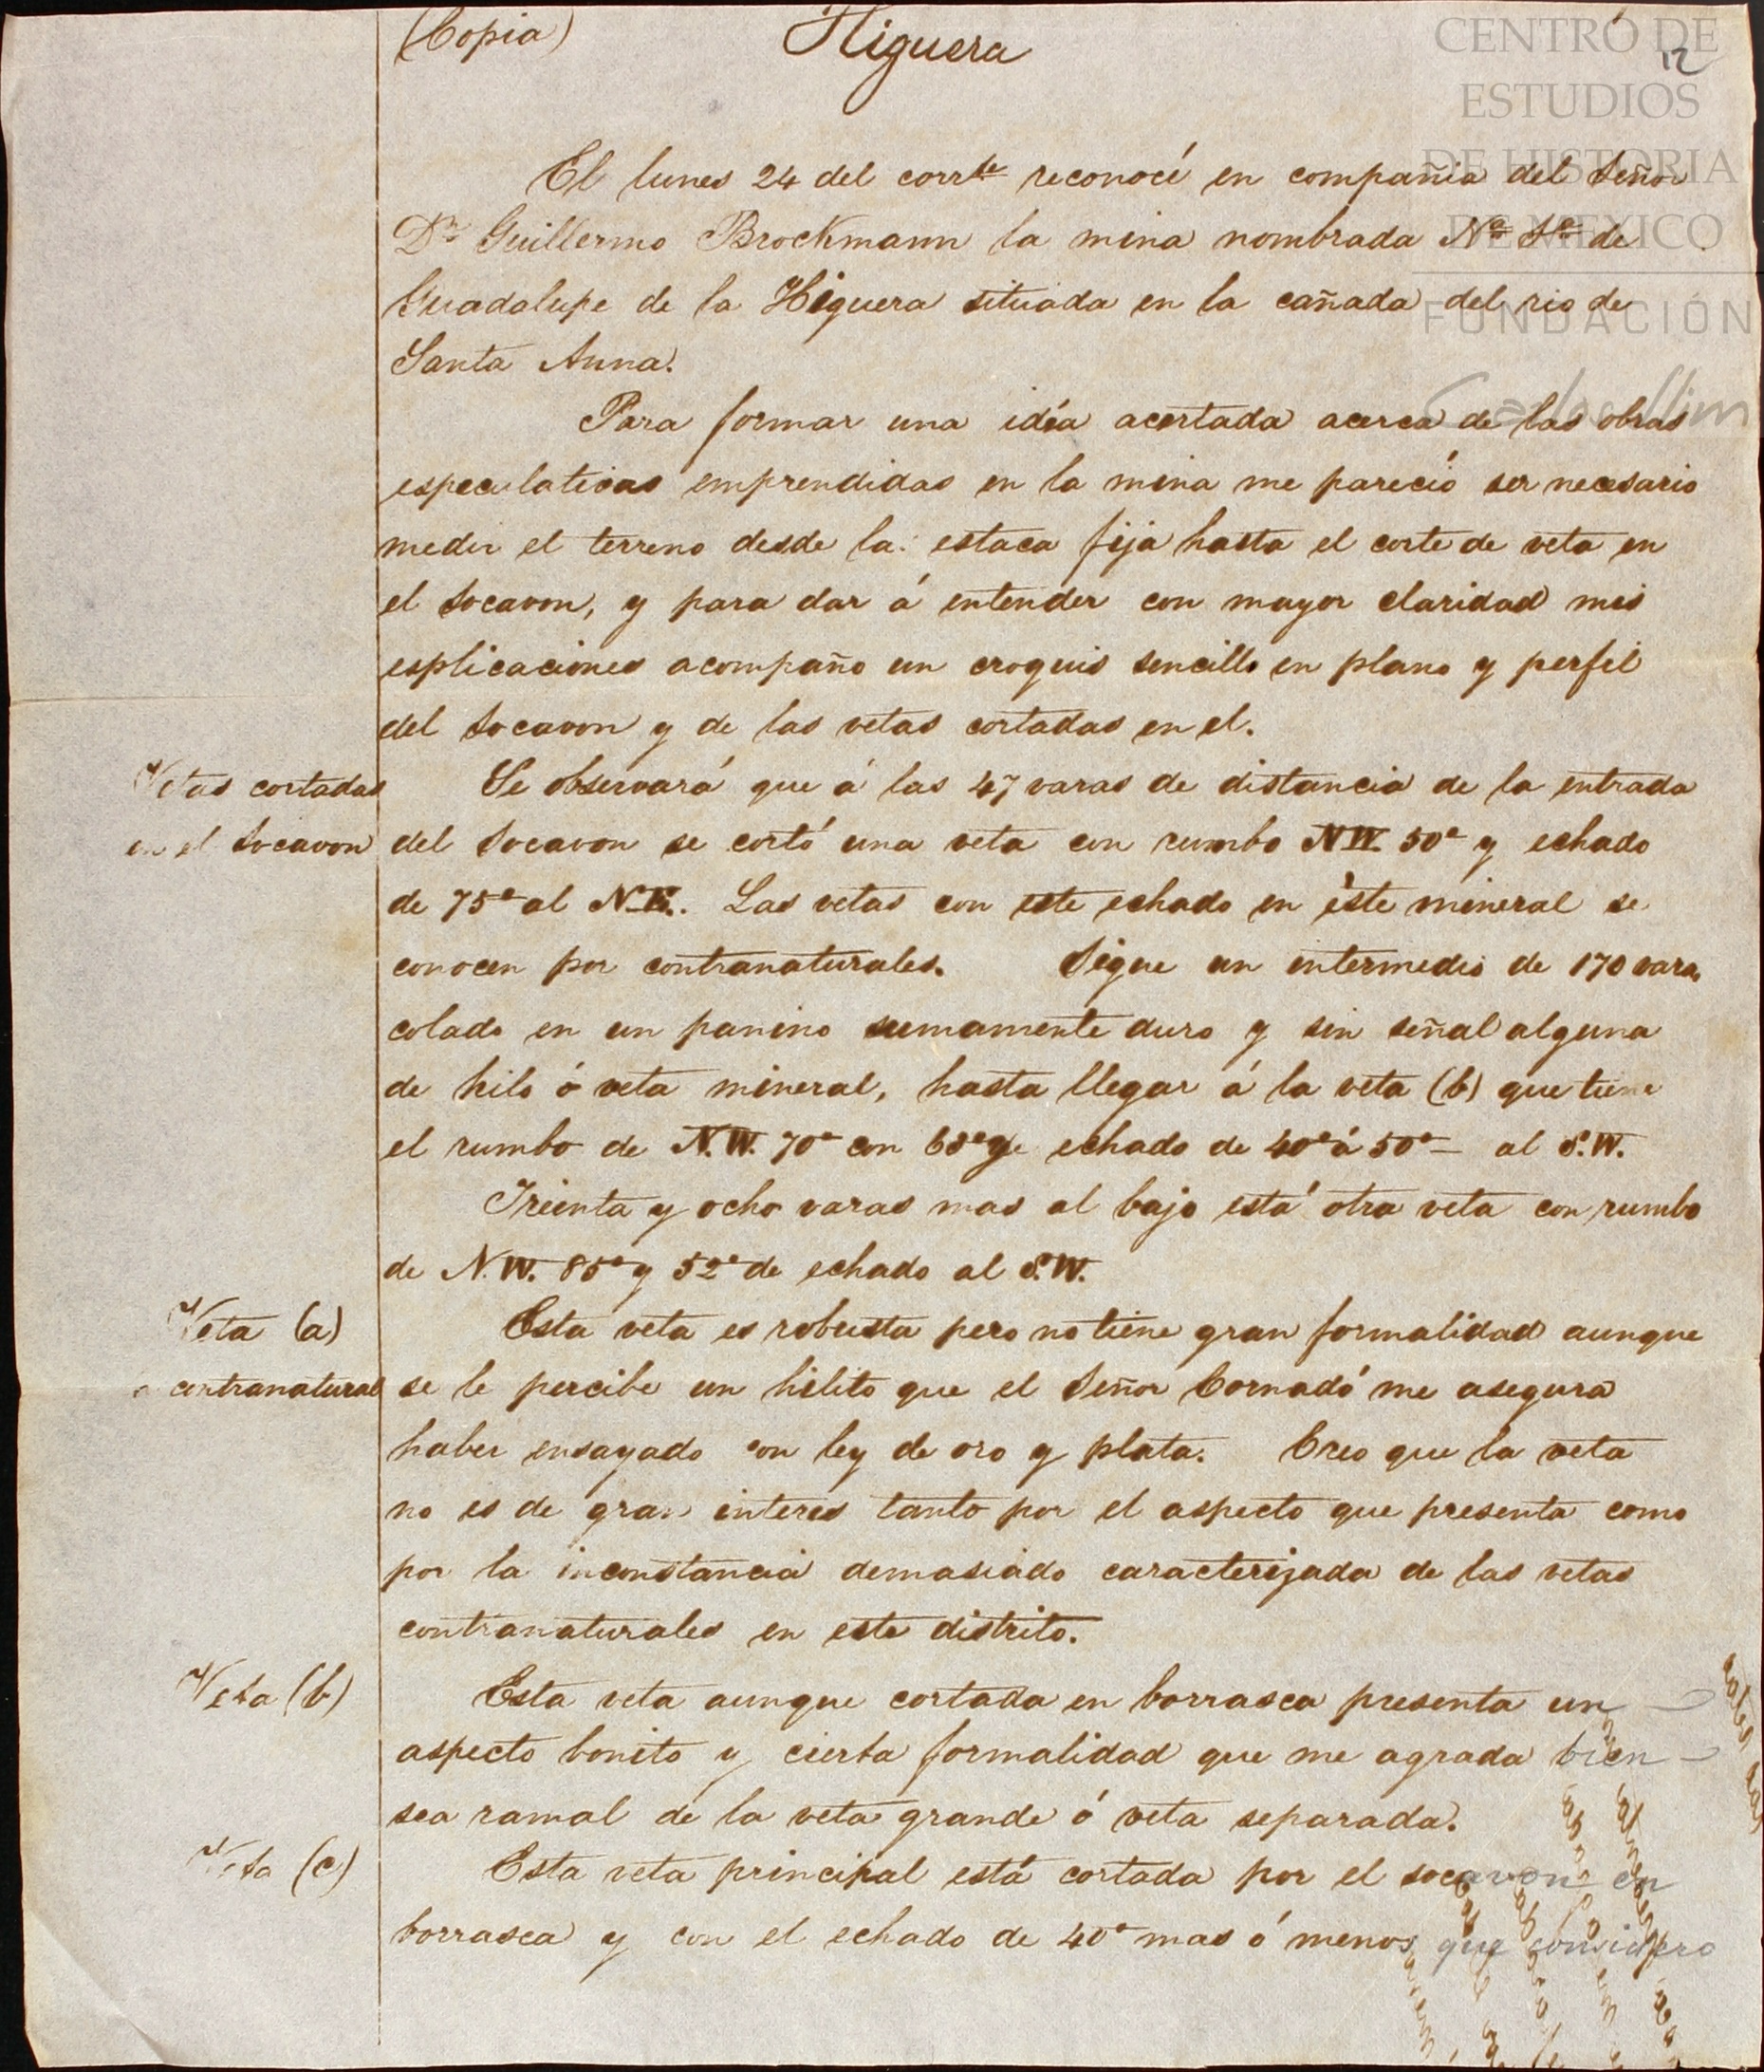 (Copia) Higuera
12
CENTRO DE
ESTUDIOS
DE HISTORIA
DE MEXICO
FUNDACIÓN
Carlos Slim
El lunes 24 del corrte reconocí en compañia del Señor
Dn Guillermo Brockmann la mina nombrada Na Sa de
Guadalupe de la Higuera situada en la cañada del rio de
Santa Anna.
Para formar una idéa acertada acerca de las obras
especulativas emprendidas en la mina me pareció ser necesario
medir el terreno desde la estaca fija hasta el corte de veta en
el socavon, y para dar á entender con mayor claridad mis
esplicaciones acompaño un croquis sencillo en plano y perfil
del socavon y de las vetas cortadas en el.
Vetas cortadas Se observará que á las 47 varas de distancia de la entrada
en el socavon del socavon se cortó una veta con rumbo NW 50° y echado
de 75° al N.E. Las vetas con este echado en éste mineral se
conocen por contranaturales. Sigue un intermedio de 170 varas
colado en un panino sumamente duro y sin señal alguna
de hilo ó veta mineral, hasta llegar á la veta (b) que tiene
el rumbo de N.W. 70° con echado de 40° á 50° – al S.W.
Trienta y ocho varas mas al bajo está otra veta con rumbo
de N.W. 85° y 52° de echado al S.W.
Veta (a) Esta veta es robusta pero no tiene gran formalidad aunque
contranatural se le percibe un hilito que el Señor Cornadó me asegura
haber ensayado con ley de oro y plata. Creo que la veta
no es de gran interes tanto por el aspecto que presenta como
por la inconstancia demasiado caracterizada de las vetas
contranaturales en este distrito.
Veta (b) Esta veta aunque cortada en borrasca presenta un
aspecto bonito y cierta formalidad que me agrada bien
sea ramal de la veta grande ó veta separada.
Veta (c) Esta veta principal está cortada por el socavon en
borrasca y con el echado de 40° mas ó menos que considero